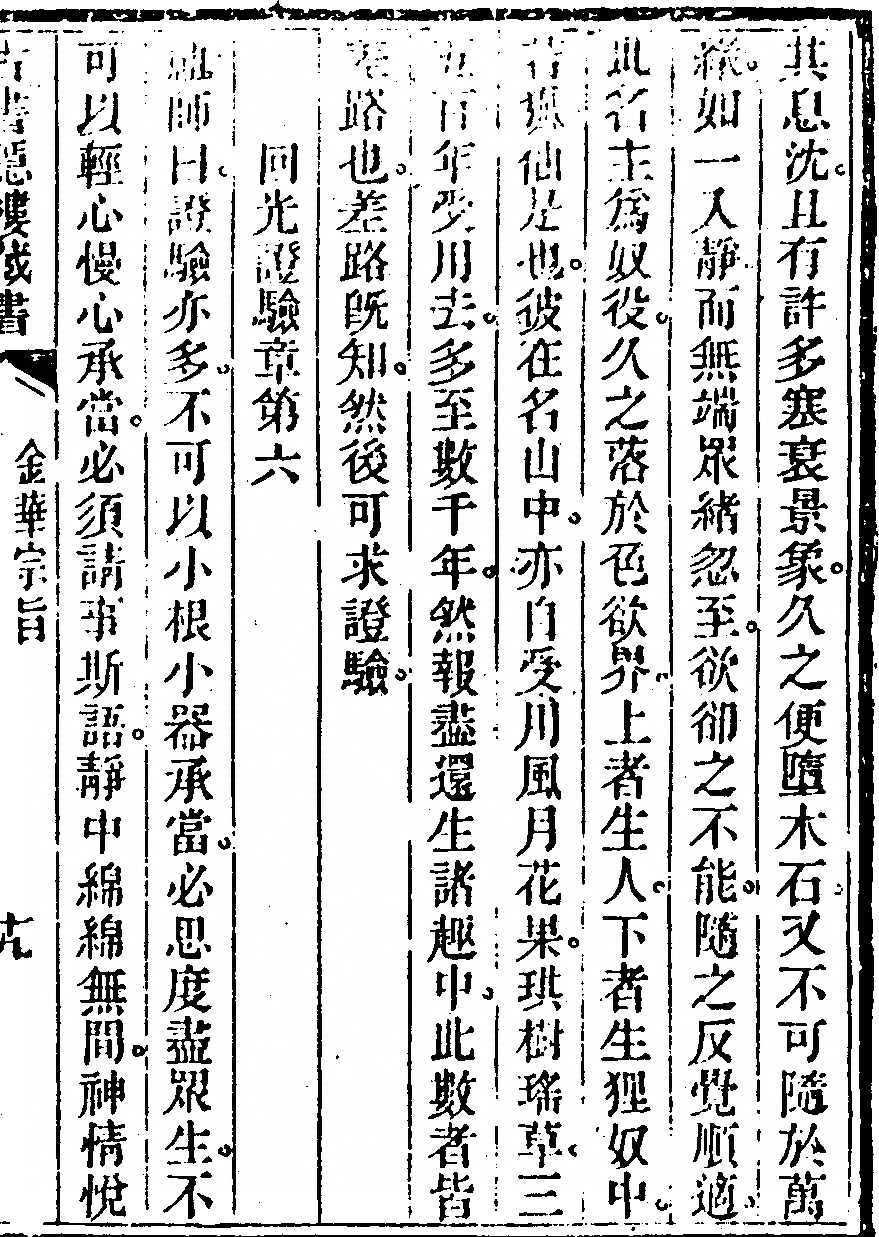 其息沈且有許多塞衰景象久之便墮木石又不可隨於萬
緣如一入靜而無端眾緒忽至欲卻之不能隨之反覺順適
此名主爲奴役久之落於色欲界上者生人下者生狸奴中
若狐仙是也彼在名山中亦自受用風月花果琪樹瑤草三
五百年受用去多至數千年然報盡還生諸趣中此數者皆
差路也差路既知然後可求證驗
回光證驗章第六
祖師曰證驗亦多不可以小根小器承當必思度盡眾生不
可以輕心慢心承當必須請事斯語靜中綿綿無間神情悅
古書隱樓藏書
金華宗旨
十九